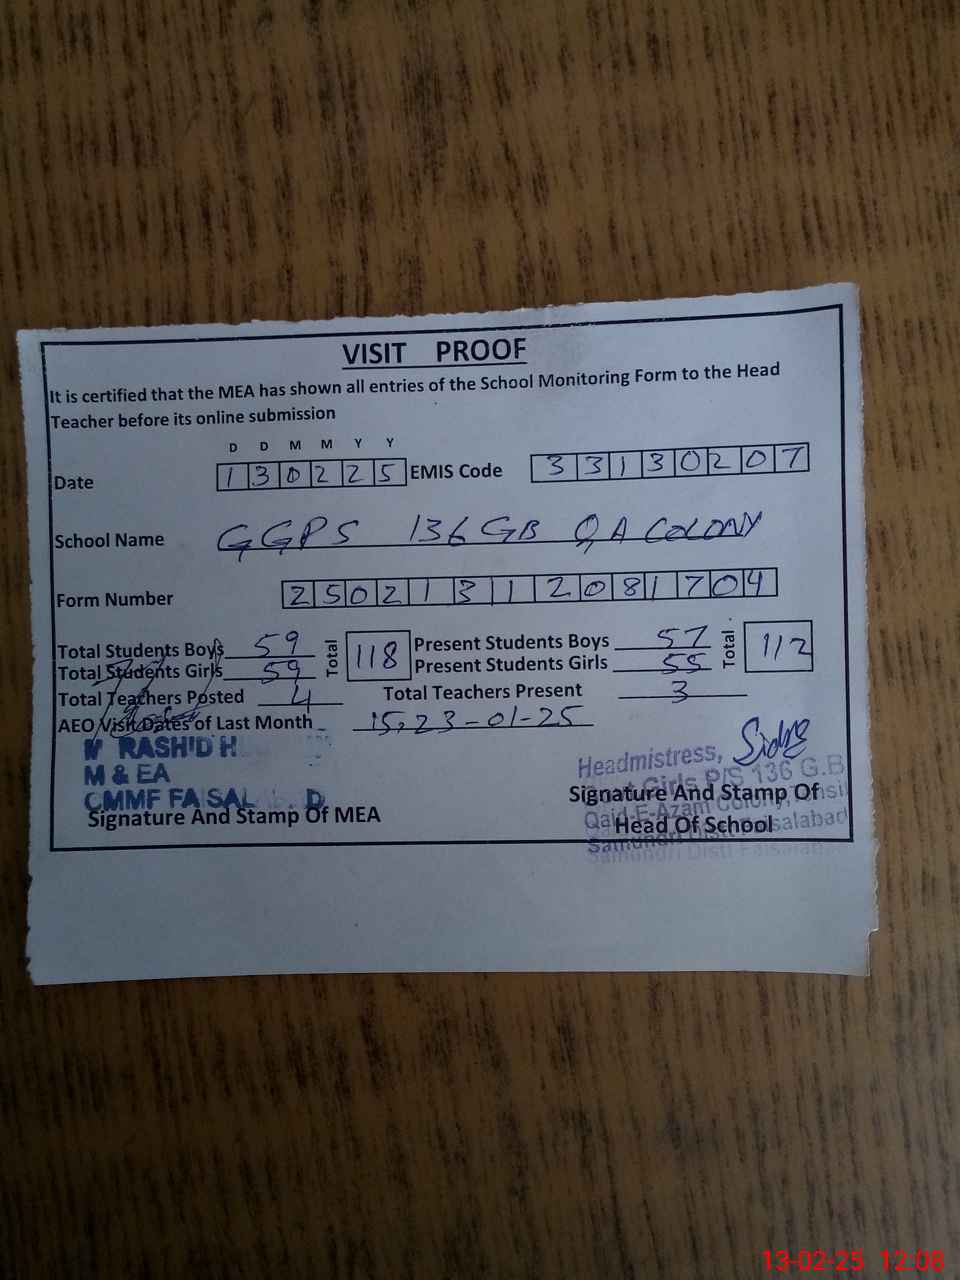 VISIT PROOF
It is certified that the MEA has shown all entries of the School Monitoring Form to the Head
Teacher before its online submission
D D M M Y Y
Date 1 3 0 2 2 5 EMIS Code 3 3 1 3 0 2 0 7
School Name GGPS 136 GB Q A COLONY
Form Number 2 5 0 2 1 3 1 1 2 0 8 1 7 0 4
Total Students Boys 59 Total 118 Present Students Boys 57 Total 112
Total Students Girls 59 Present Students Girls 55
Total Teachers Posted 4 Total Teachers Present 3
AEO Visit Dates of Last Month 15, 23-01-25
RASHID H
M & EA
CMMF FAISAL D
Signature And Stamp Of MEA
Headmistress, Sidra
Girls P/S 136 G.B
Signature And Stamp Of
Qaid-E-Azam Colony,
Head Of School
Samundri Distt Faisalabad
13-02-25 12:08